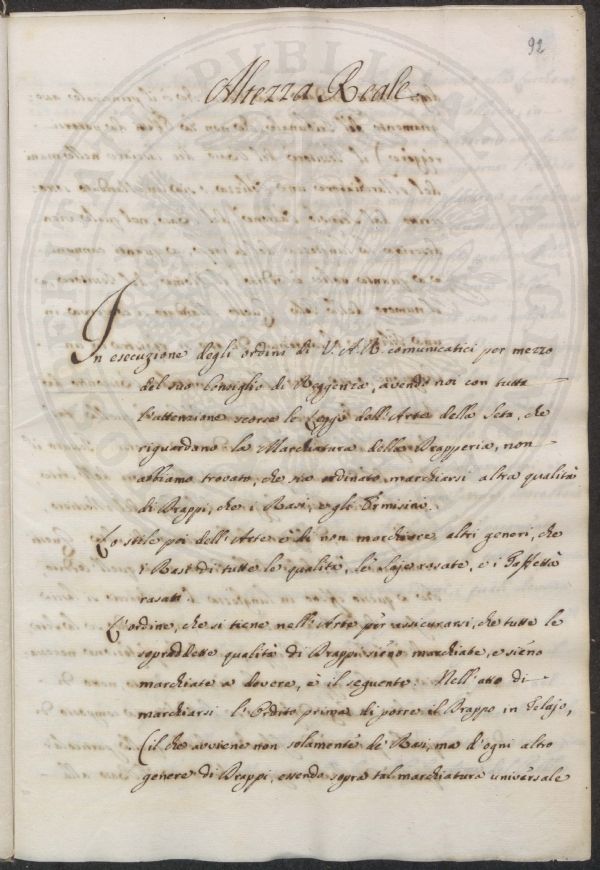 92
Altezza Reale
In esecuzione degli ordini di V. A. R. comunicatici per mezzo
del suo Consiglio di Reggenza, avendo noi con tutta
l'attenzione scorse le Leggi dell'Arte della Seta, che
riguardano la Marchiatura della Drapperia, non
abbiamo trovato, che sia ordinato marchiarsi altra qualità
di Drappi, che i Rasi, e gli Ermisini.
Lo stile poi dell'Arte è di non marchiare altri generi, che
i Rasi di tutte le qualità, le saje rosate, e i Taffettà
rasati
L'ordine, che si tiene nell'Arte per assicurarsi, che tutte le
sopraddette qualità di Drappi sieno marchiate, e sieno
marchiate a dovere, è il seguente: Nell'atto di
marchiarsi l'Ordito prima di porre il Drappo in Telajo,
(il che avviene non solamente de' Rasi, ma d'ogni altro
genere di Drappi, essendo sopra tal marchiatura universale